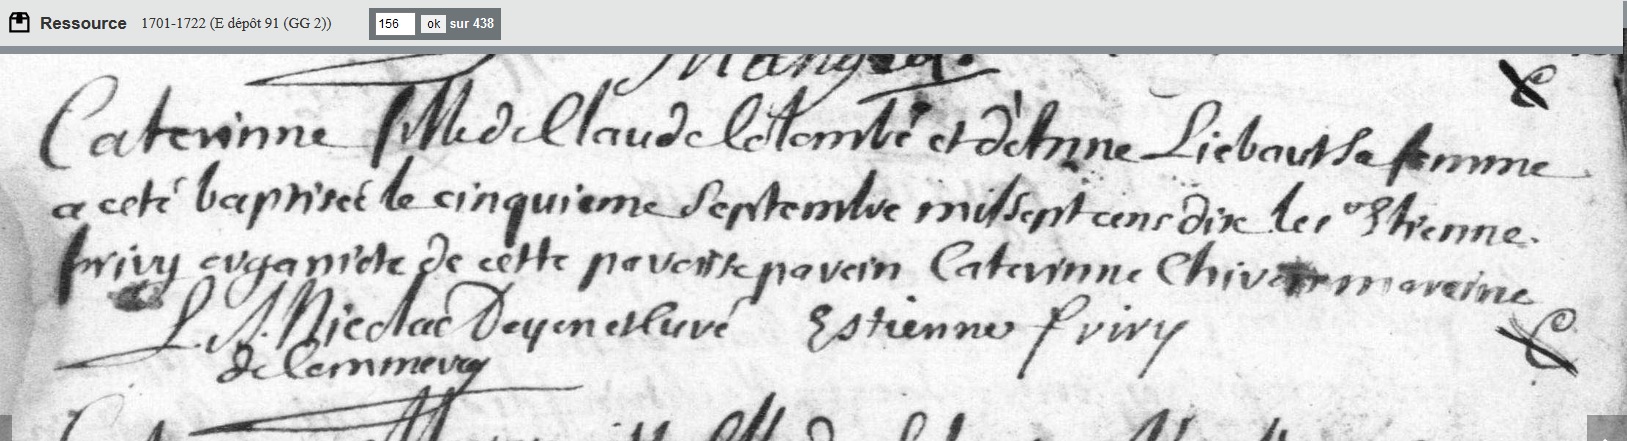 Ressource 1701-1722 (E dépôt 91 (GG 2)) 156 ok sur 438
Caterinne fille de Claude Colombé et d'Anne Liebaut sa femme
a eeté baptiseé le cinquieme Septembre mil sept cens dix les Etienne
friry organiste de cette paroisse parein Caterinne maraine
Nicolas Doyen et curé Estienne friry
de Commercy